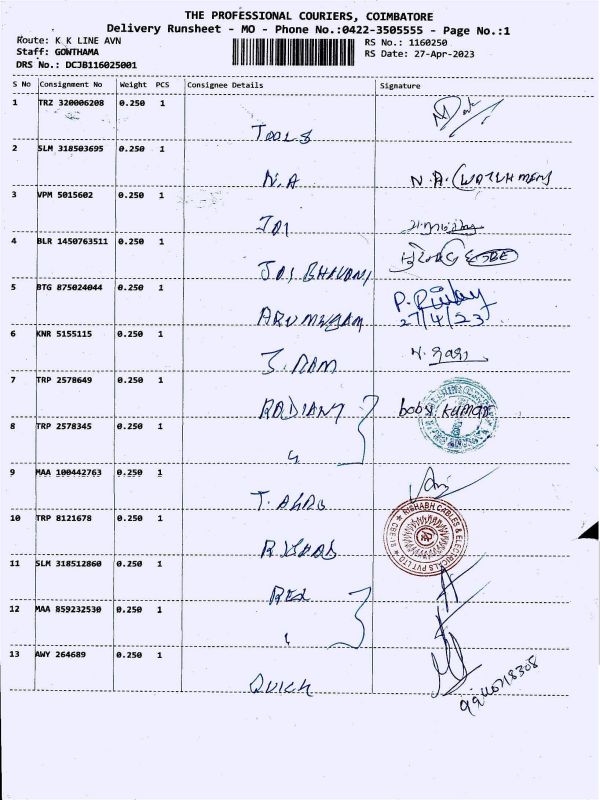 THE PROFESSIONAL COURIERS, COIMBATORE
Delivery Runsheet - MO - Phone No.:0422-3505555 - Page No.:1
Route: K K LINE AVN
RS No.: 1160250
Staff: GONTHAMA
RS Date: 27-Apr-2023
DRS No.: DCJB116025001
S No Consignment No Weight PCS Consignee Details Signature
1 TRZ 320006208 0.250 1
TOOLS
2 SLM 318503695 0.250 1
N.A N.A.
3 VPM 5015602 0.250 1
JAI
4 BLR 1450763511 0.250 1
JAI BHAVANI
5 BTG 875024044 0.250 1
ARUMUGAM 27/4/23
6 KNR 5155115 0.250 1
7 TRP 2578649 0.250 1
RADIANT
8 TRP 2578345 0.250 1
9 MAA 100442763 0.250 1
10 TRP 8121678 0.250 1
RISHABH CABLES & ELECTRICALS PVT LTD
11 SLM 318512860 0.250 1
REX
12 MAA 859232530 0.250 1
13 AWY 264689 0.250 1
QUICK